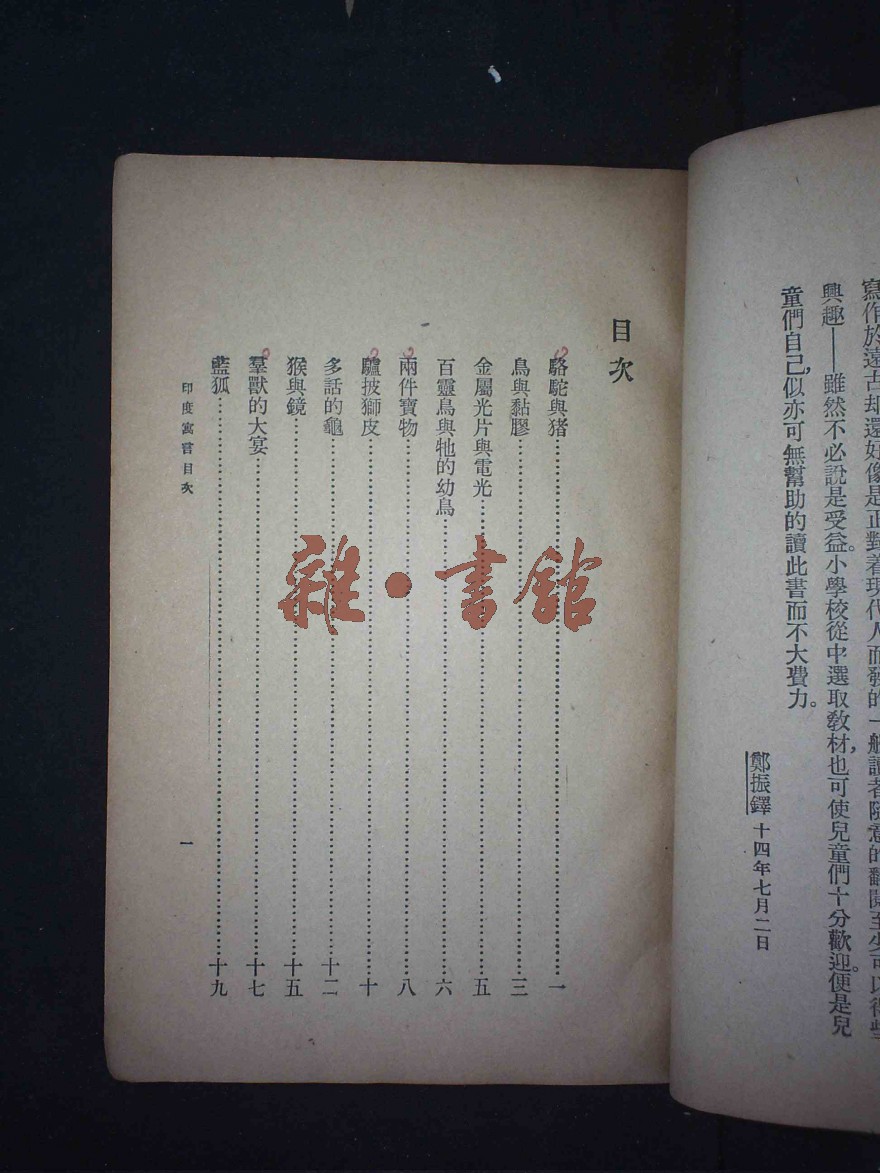 寫作於遠古却還好像是正對着現代人而發的一般讀者隨意的翻閱至少可以得些
興趣——雖然不必說是受益。小學校從中選取教材，也可使兒童們十分歡迎。便是兒
童們自己，似亦可無幫助的讀此書而不大費力。
鄭振鐸 十四年七月二日
目次
駱駝與猪……一
鳥與黏膠……三
金屬光片與電光……五
百靈鳥與牠的幼鳥……六
兩件寶物……八
驢披獅皮……十
多話的龜……十二
猴與鏡……十五
羣獸的大宴……十七
藍狐……十九
印度寓言目次
一
雜·書館